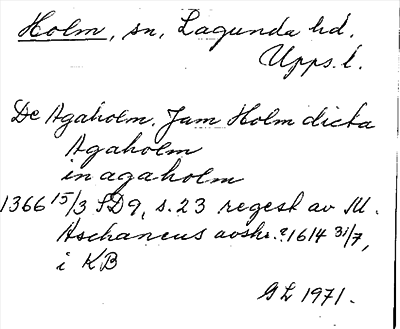 Holm, sn, Lagunda hd.
Upps. l.
De Agaholm. Jam Holm dicta
Agaholm
in agaholm
1366 15/3 SD9, s. 23 regest av M.
Aschaneus avskr. 1614 31/7,
i KB
GL 1971.